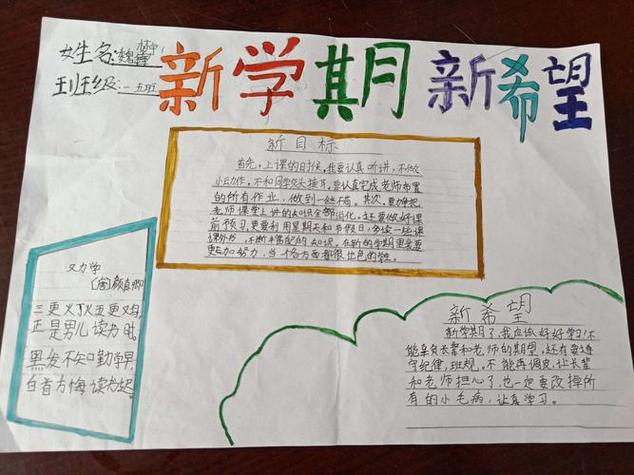 姓名:
班级:一五班
新学期 新希望
新目标
首先,上课的时候,我要认真听讲,不做
小动作,不和同学交头接耳,要认真完成老师布置
的所有作业,做到一丝不苟。其次,要争把
老师课堂上讲的知识全部消化,还要做好课
前预习,更要利用星期天和节假日,多读一些课
课外书,不断丰富自己的知识,在新的学期里我要
更加努力,当一个各方面都很出色的
又力学
(唐)颜真卿
三更火丁火五更又鸟,
正是男儿读书时。
黑发不知口勤学早,
白首方悔读书迟。
新希望
新学期了,我应该好好学习!不
能辜负长辈和老师的期望,还有要遵
守纪律,班规,不能再调皮,让长辈
和老师担心了,也一定要改掉所
有的小毛病,认真学习。